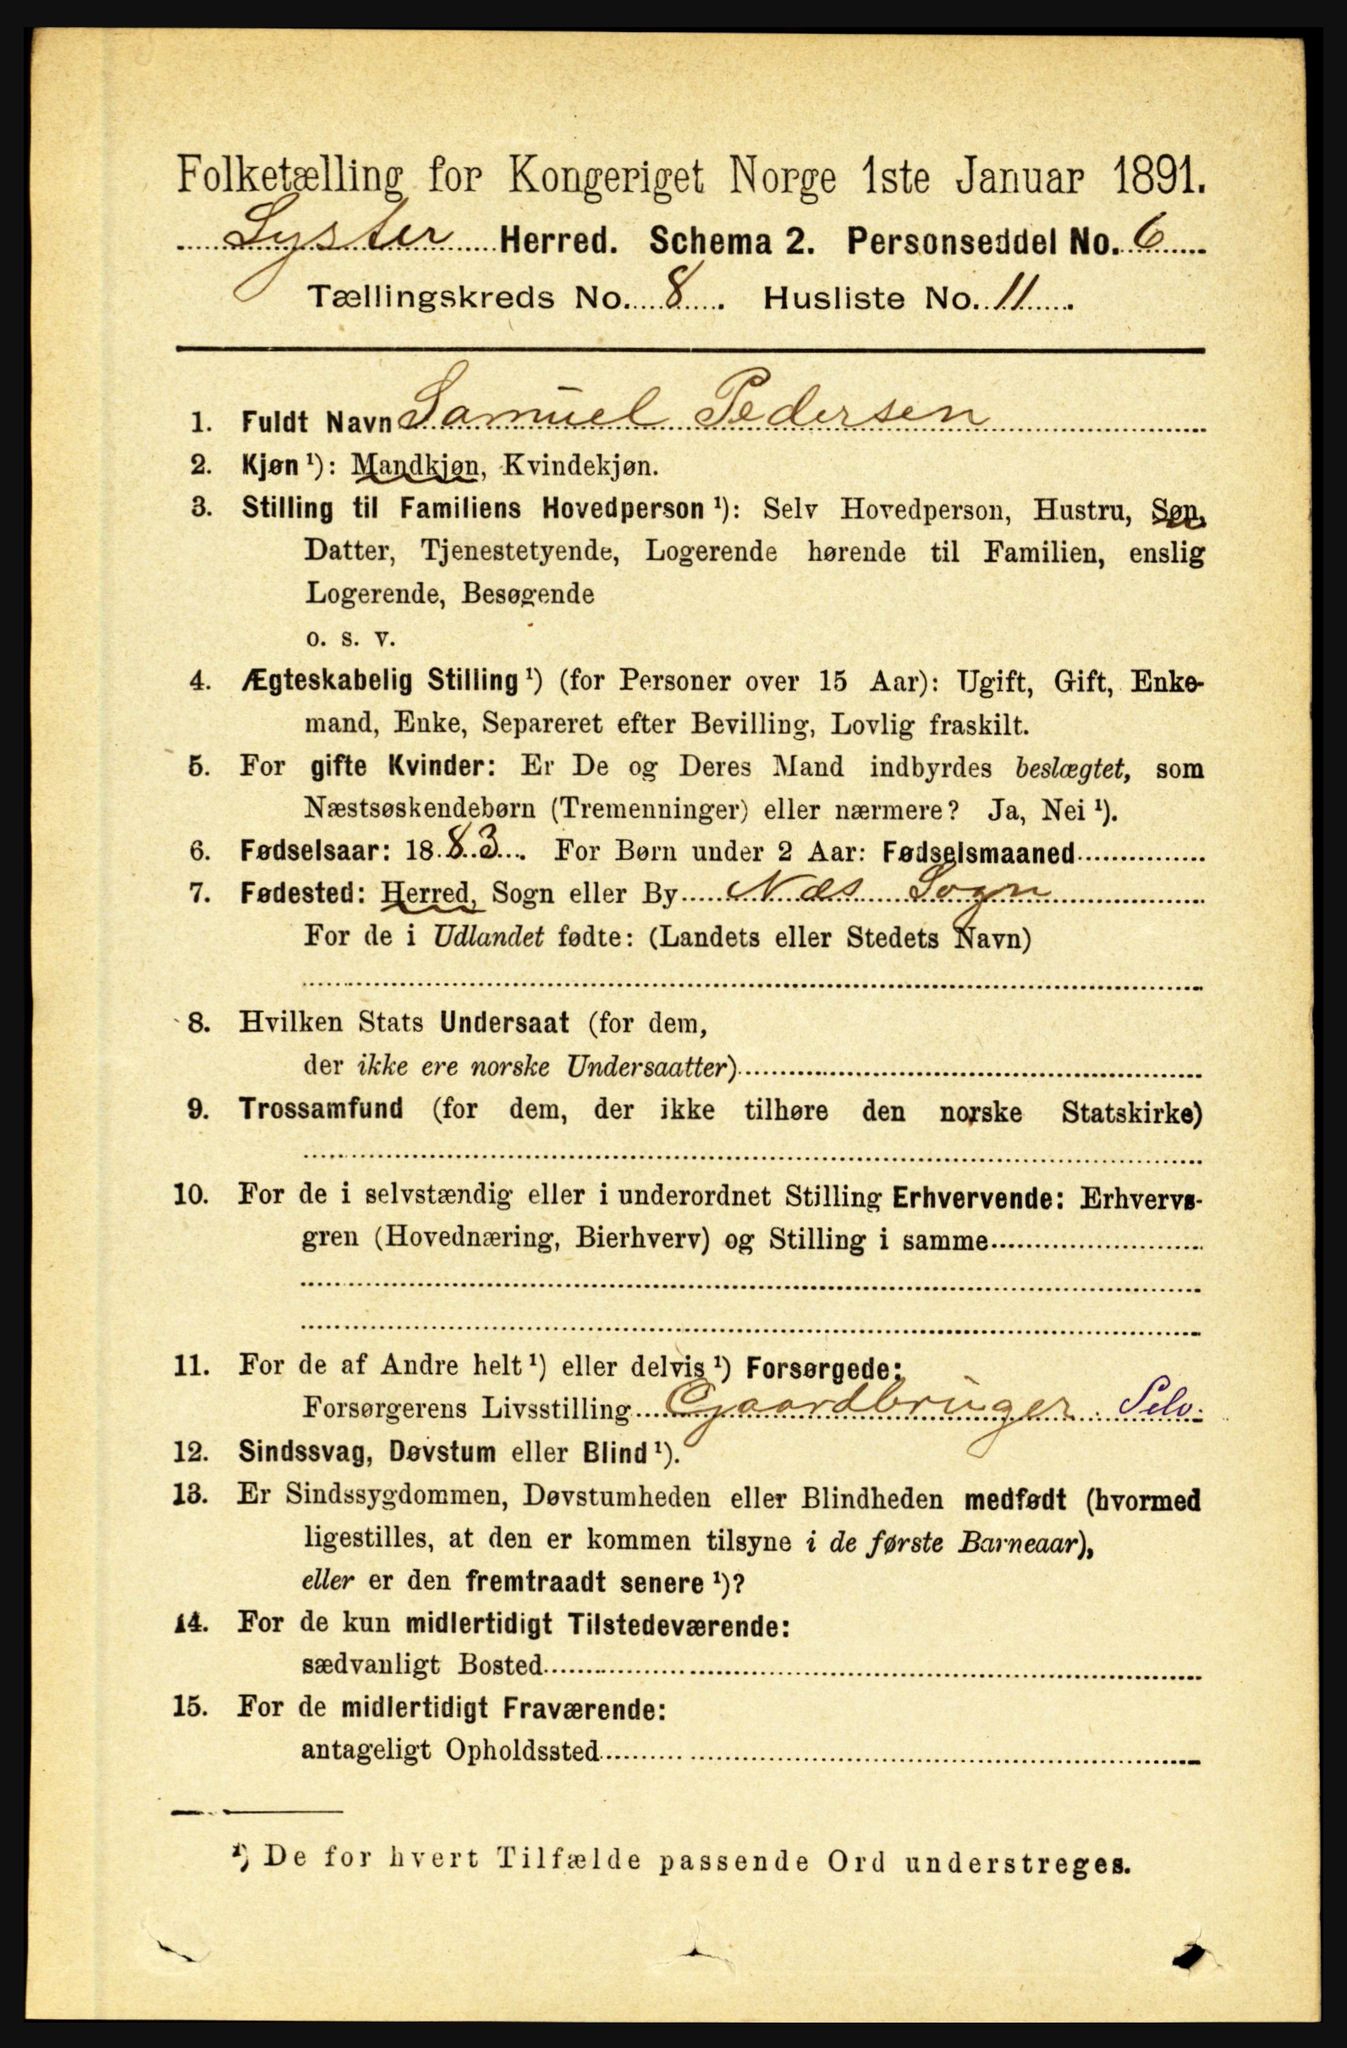 Folketælling for Kongeriget Norge 1ste Januar 1891.
Lyster Herred. Schema 2. Personseddel No. 6
Tællingskreds No. 8. Husliste No. 11.
1. Fuldt Navn Samuel Pedersen
2. Kjøn ¹): Mandkjøn, Kvindekjøn.
3. Stilling til Familiens Hovedperson ¹): Selv Hovedperson, Hustru, Søn,
Datter, Tjenestetyende, Logerende hørende til Familien, enslig
Logerende, Besøgende
o. s. v.
4. Ægteskabelig Stilling ¹) (for Personer over 15 Aar): Ugift, Gift, Enke-
mand, Enke, Separeret efter Bevilling, Lovlig fraskilt.
5. For gifte Kvinder: Er De og Deres Mand indbyrdes beslægtet, som
Næstsøskendebørn (Tremenninger) eller nærmere? Ja, Nei ¹).
6. Fødselsaar: 1883. For Børn under 2 Aar: Fødselsmaaned
7. Fødested: Herred, Sogn eller By Næs Sogn
For de i Udlandet fødte: (Landets eller Stedets Navn)
8. Hvilken Stats Undersaat (for dem,
der ikke ere norske Undersaatter)
9. Trossamfund (for dem, der ikke tilhøre den norske Statskirke)
10. For de i selvstændig eller i underordnet Stilling Erhvervende: Erhvervs-
gren (Hovednæring, Bierhverv) og Stilling i samme
11. For de af Andre helt ¹) eller delvis ¹) Forsørgede:
Forsørgerens Livsstilling Gaardbruger Selv.
12. Sindssvag, Døvstum eller Blind ¹).
13. Er Sindssygdommen, Døvstumheden eller Blindheden medfødt (hvormed
ligestilles, at den er kommen tilsyne i de første Barneaar),
eller er den fremtraadt senere ¹)?
14. For de kun midlertidigt Tilstedeværende:
sædvanligt Bosted
15. For de midlertidigt Fraværende:
antageligt Opholdssted
¹) De for hvert Tilfælde passende Ord understreges.